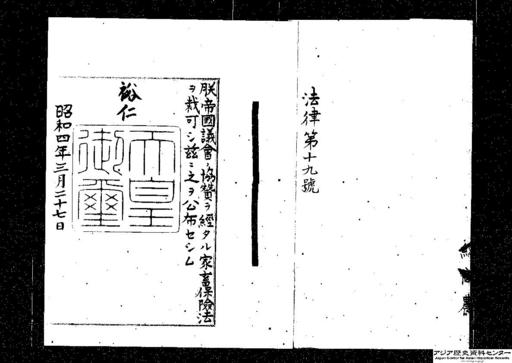 法律第十九號
朕帝國議會ノ協贊ヲ經タル家畜保險法
ヲ裁可シ茲ニ之ヲ公布セシム
裕仁
天皇
御璽
昭和四年三月二十七日
アジア歴史資料センター
Japan Center for Asian Historical Records